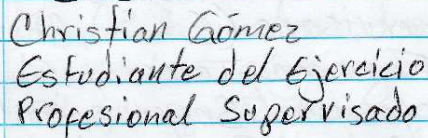 Christian Gómez
Estudiante del Ejercicio
Profesional Supervisado